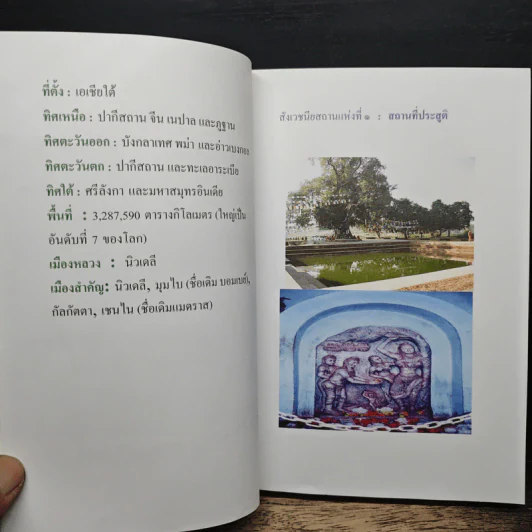 ที่ตั้ง : เอเชียใต้
ทิศเหนือ : ปากีสถาน จีน เนปาล และภูฐาน
ทิศตะวันออก : บังกลาเทศ พม่า และอ่าวเบงกอล
ทิศตะวันตก : ปากีสถาน และทะเลอาระเบีย
ทิศใต้ : ศรีลังกา และมหาสมุทรอินเดีย
พื้นที่ : 3,287,590 ตารางกิโลเมตร (ใหญ่เป็น
อันดับที่ 7 ของโลก)
เมืองหลวง : นิวเดลี
เมืองสำคัญ: นิวเดลี, มุมไบ (ชื่อเดิม บอมเบย์),
กัลกัตตา, เชนไน (ชื่อเดิมแมดราส)
สังเวชนียสถานแห่งที่ ๑ : สถานที่ประสูติ